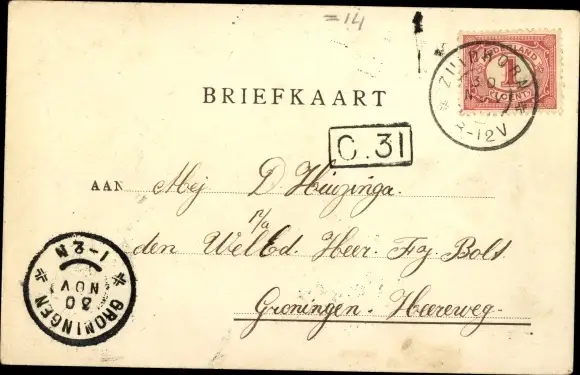 =14
NEDERLAND
1
CENT
ZUIDHORN
30
NOV
-12V
BRIEFKAART
C.31
AAN Mej D. Huizinga.
p/a
den WelEd. Heer. Fz. Bolt
Groningen. Heereweg.
1-2N
30
NOV
GRONINGEN